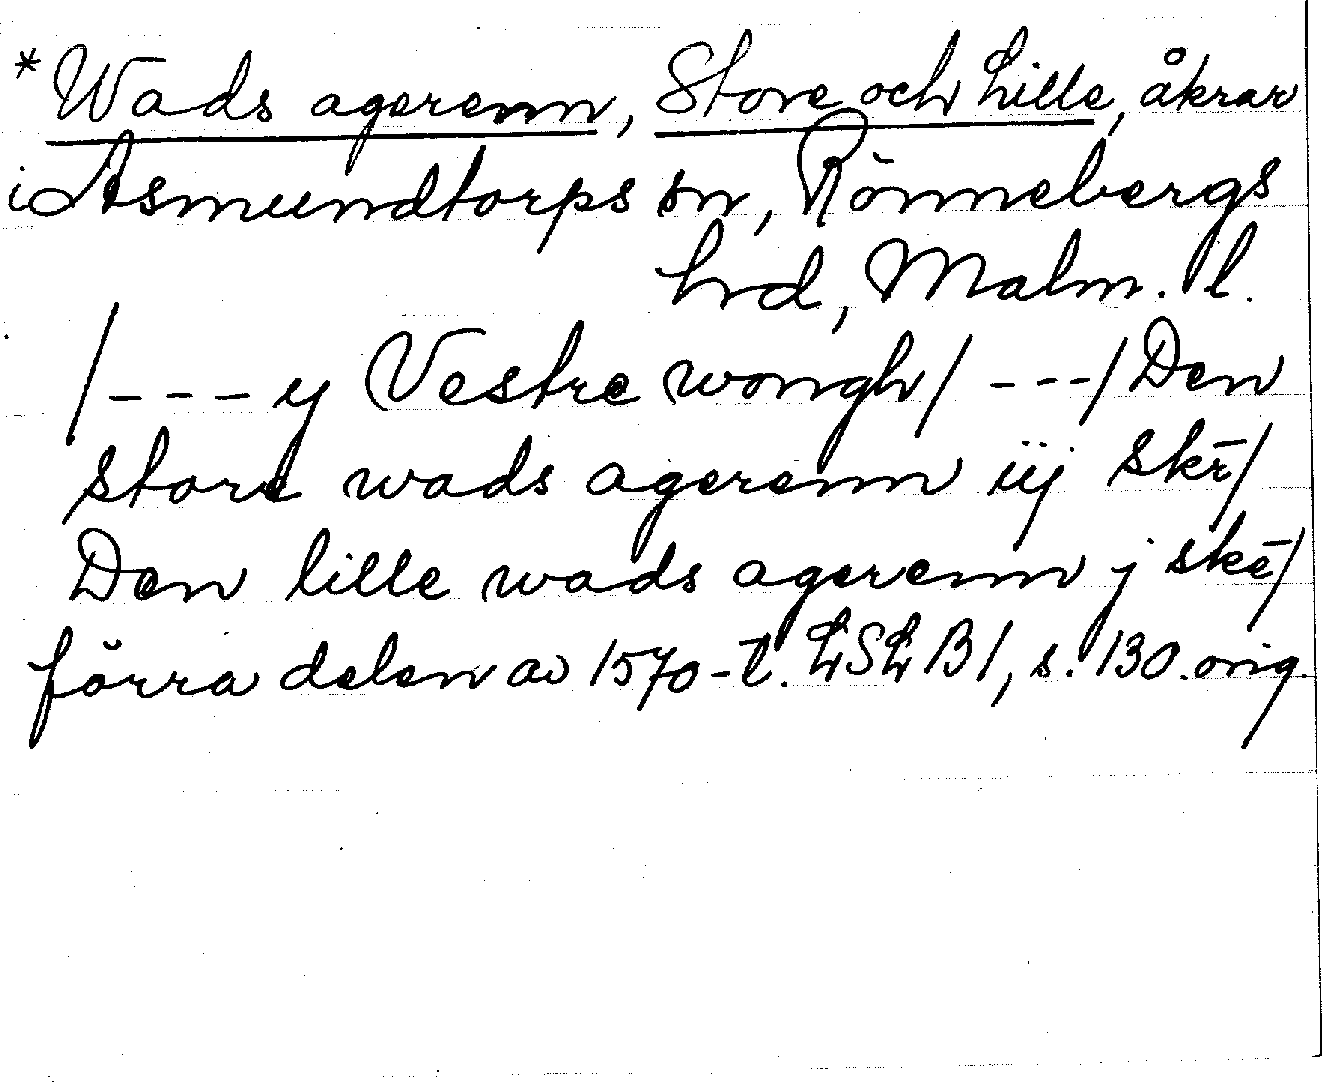 *Wads agerenn, Store och Lille, åkrar
i Asmundtorps sn, Rönnebergs
hrd, Malm. l.
/---y Vestre wongh/ ---/ Den
store wads agerenn iij skr̄/
Den lille wads agerenn j skē/
förra delen av 1570-t. LSLB 1, s. 130. orig.